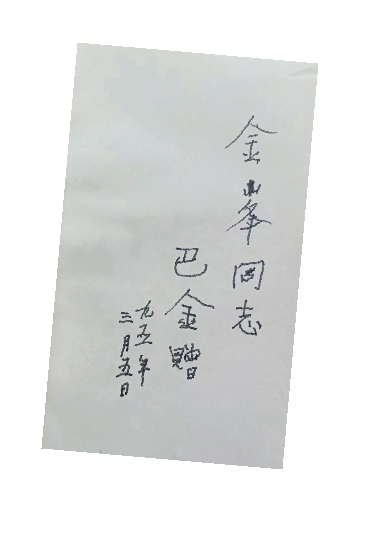 金峯同志
巴金贈
九五年
三月五日